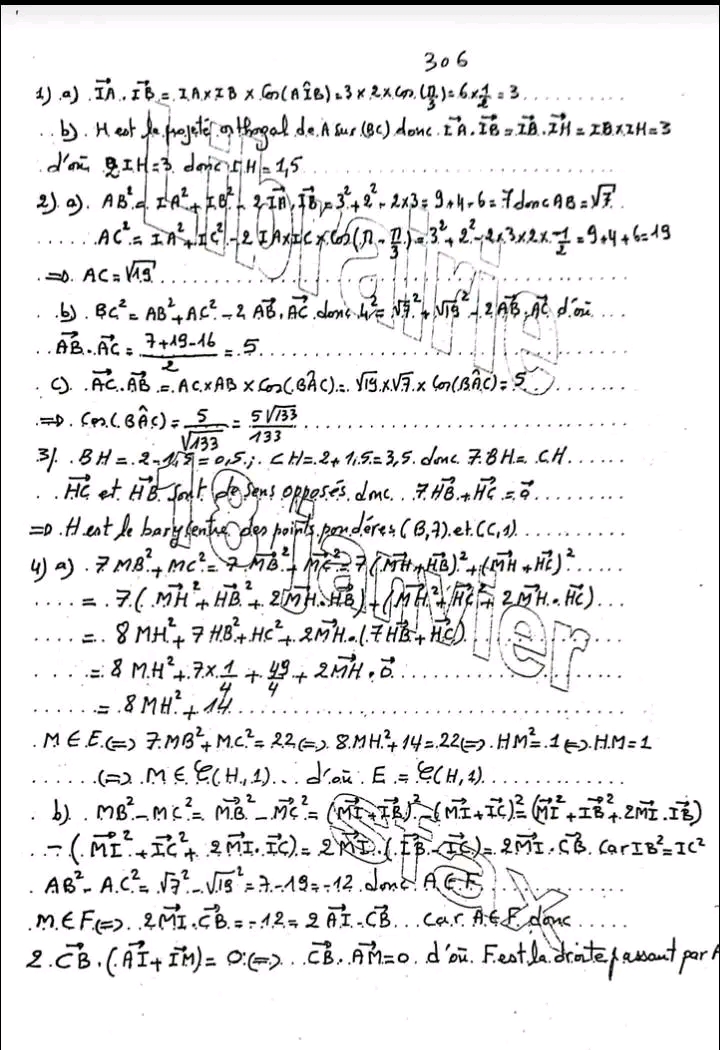 306
1) a) IA⃗ . IB⃗ = IA x IB x Cos(AÎB) = 3 x 2 x cos(π/3) = 6 x 1/2 = 3
b) H est le projeté orthogal de A sur (BC) donc IA⃗ . IB⃗ = IB⃗ . IH⃗ = IB x IH = 3
d'où 2 IH = 3 donc IH = 1,5
2) a) AB² = IA² + IB² - 2 IA⃗ . IB⃗ = 3² + 2² - 2x3 = 9 + 4 - 6 = 7 donc AB = √7
AC² = IA² + IC² - 2 IA x IC x Cos(π - π/3) = 3² + 2² - 2x3x2x -1/2 = 9 + 4 + 6 = 19
=> AC = √19
b) BC² = AB² + AC² - 2 AB⃗ . AC⃗ donc 4² = √7² + √19² - 2 AB⃗ . AC⃗ d'où
AB⃗ . AC⃗ = (7+19-16)/2 = 5
c) AC⃗ . AB⃗ = AC x AB x Cos(BÂC) = √19 x √7 x Cos(BÂC) = 5
=> Cos(BÂC) = 5/√133 = 5√133/133
3/ BH = 2 - 1,5 = 0,5 ; CH = 2 + 1,5 = 3,5 donc 7 BH = CH
HC⃗ et HB⃗ sont de sens opposés donc 7 HB⃗ + HC⃗ = 0⃗
=> H est le barycentre des points pondérés (B,7) et (C,1)
4) a) 7 MB² + MC² = 7 MB⃗² + MC⃗² = 7 (MH⃗ + HB⃗)² + (MH⃗ + HC⃗)²
= 7 (MH⃗² + HB⃗² + 2 MH⃗ . HB⃗) + (MH⃗² + HC⃗² + 2 MH⃗ . HC⃗)
= 8 MH² + 7 HB² + HC² + 2 MH⃗ . (7 HB⃗ + HC⃗)
= 8 MH² + 7 x 1/4 + 49/4 + 2 MH⃗ . 0⃗
= 8 MH² + 14
M ∈ E <=> 7 MB² + MC² = 22 <=> 8 MH² + 14 = 22 <=> HM² = 1 <=> HM = 1
<=> M ∈ 𝒞(H,1) d'où E = 𝒞(H,1)
b) MB² - MC² = MB⃗² - MC⃗² = (MI⃗ + IB⃗)² - (MI⃗ + IC⃗)² = (MI⃗² + IB⃗² + 2 MI⃗ . IB⃗)
- (MI⃗² + IC⃗² + 2 MI⃗ . IC⃗) = 2 MI⃗ . (IB⃗ - IC⃗) = 2 MI⃗ . CB⃗ Car IB² = IC²
AB² - AC² = √7² - √19² = 7 - 19 = -12 donc A ∈ F
M ∈ F <=> 2 MI⃗ . CB⃗ = -12 = 2 AI⃗ . CB⃗ car A ∈ F donc
2 CB⃗ . (AI⃗ + IM⃗) = 0 <=> CB⃗ . AM⃗ = 0 d'où F est la droite passant par A
Librairie
18 janvier
Sfax